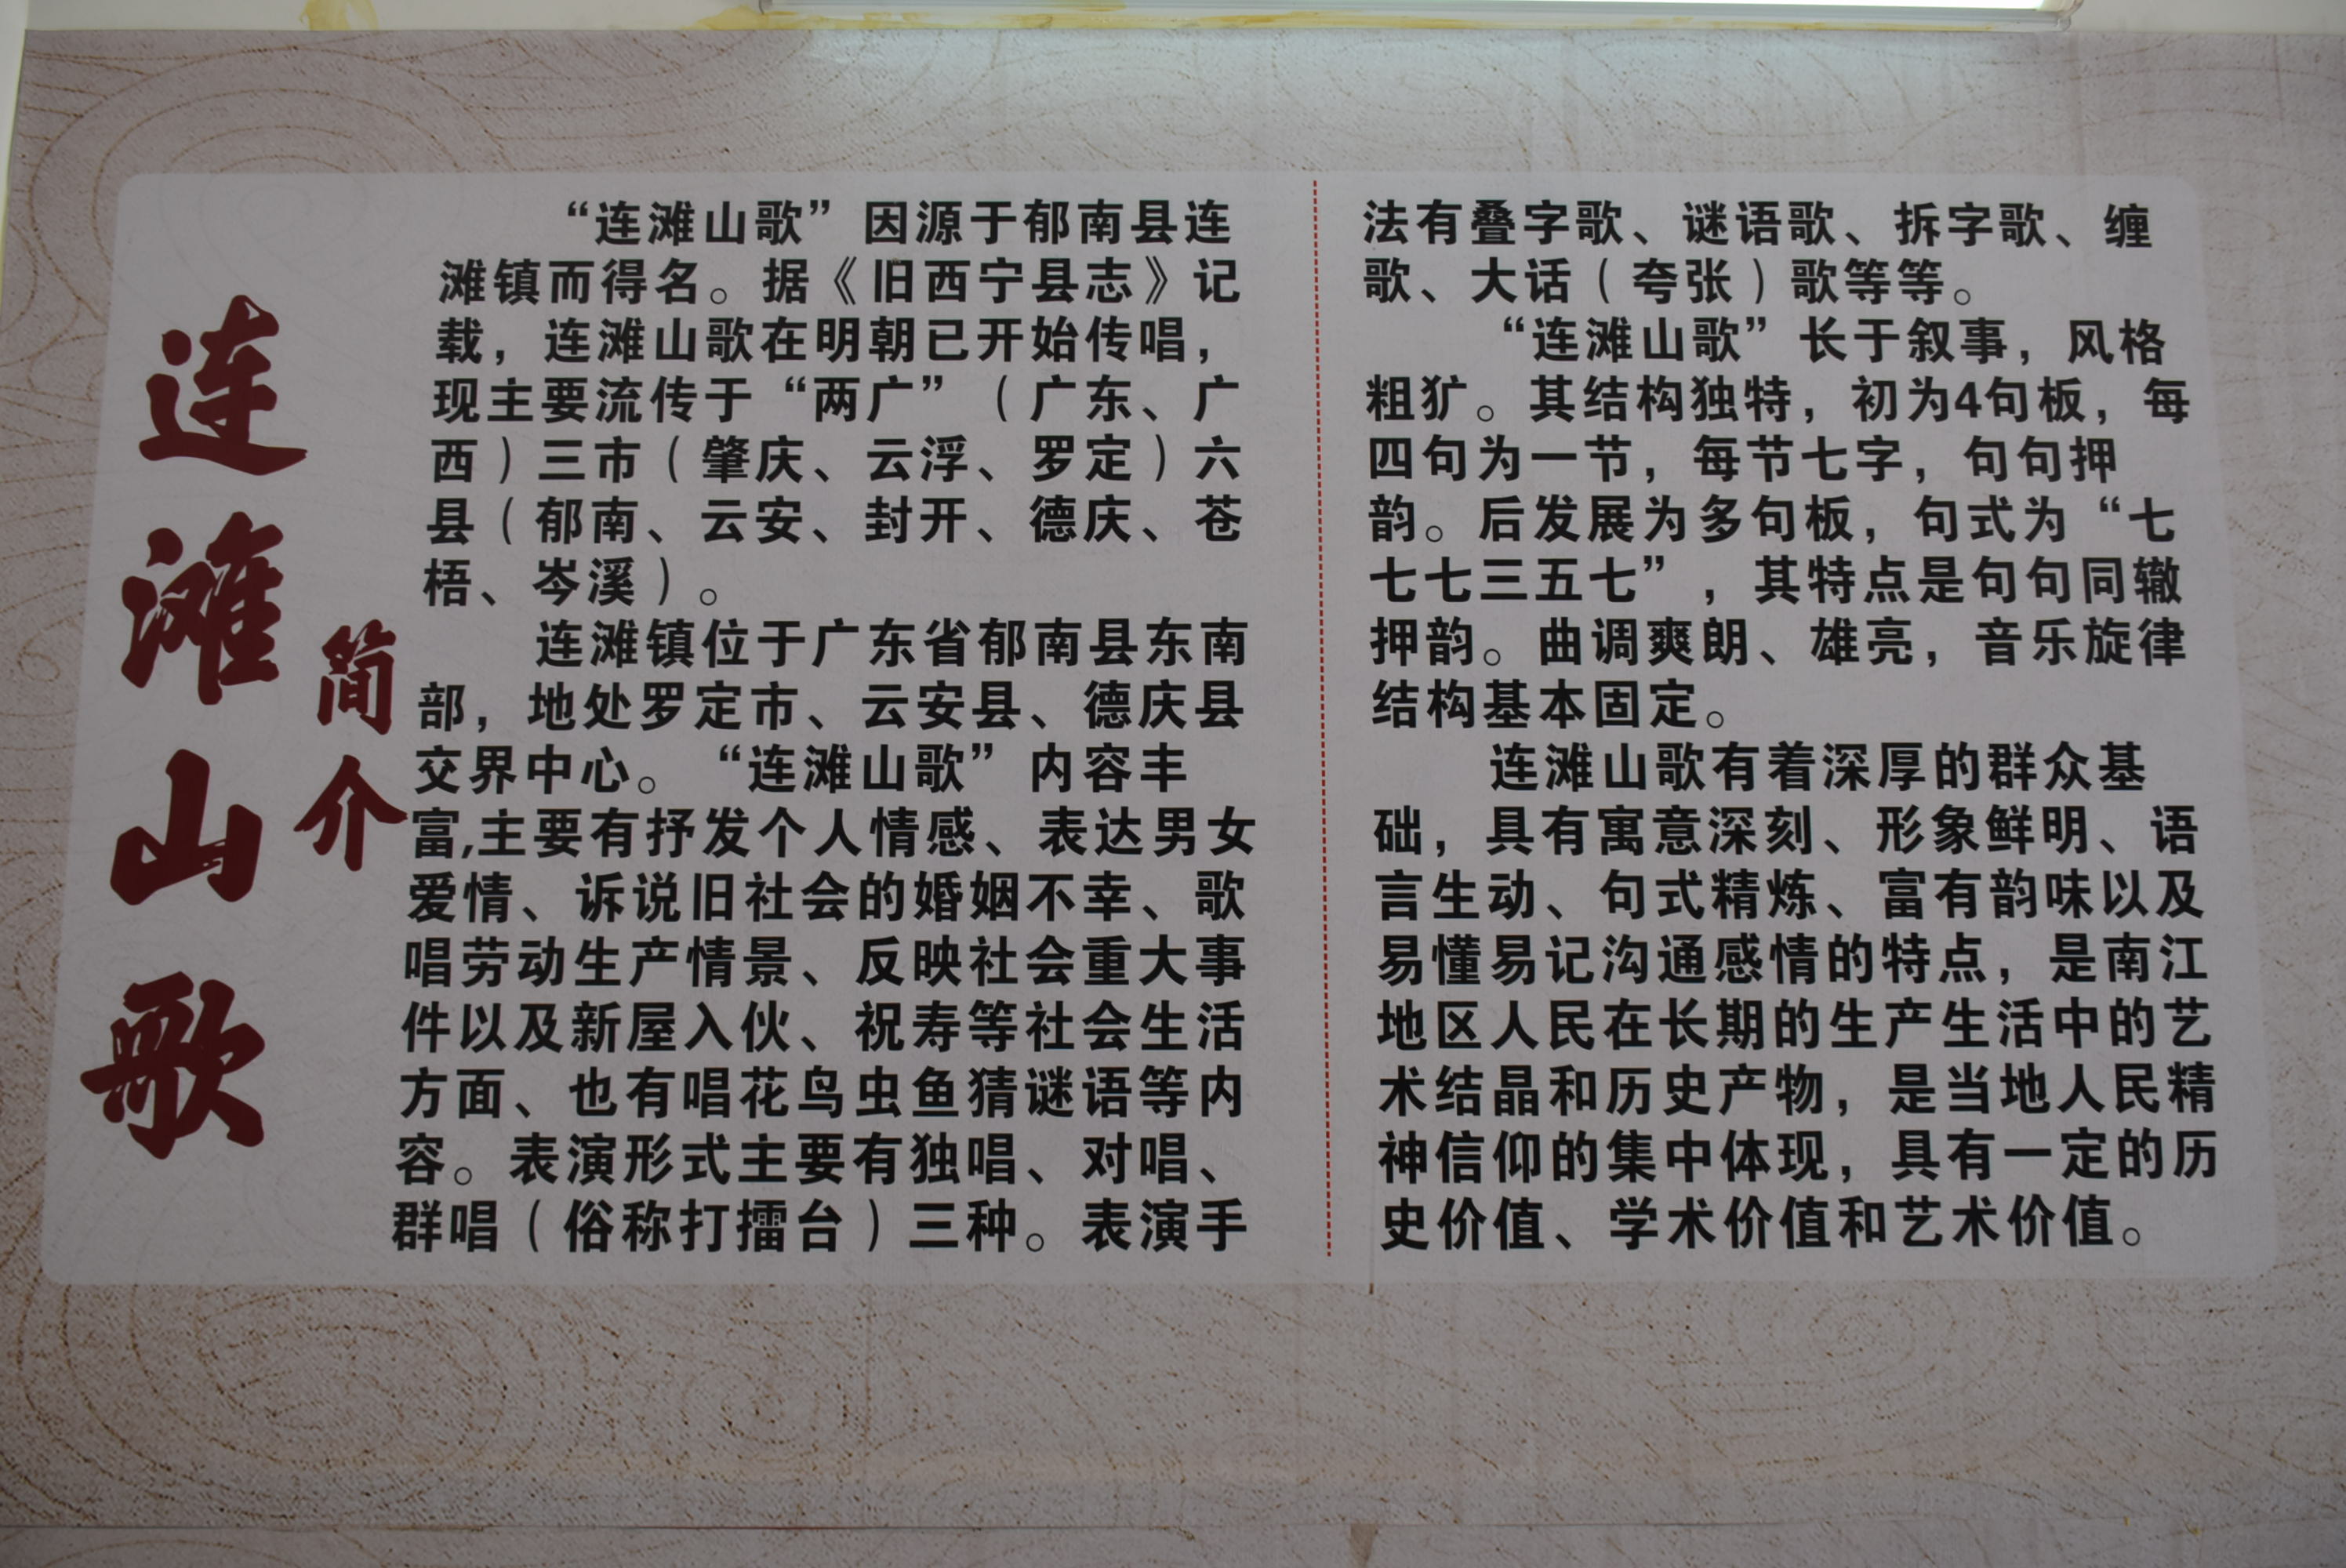 连滩山歌
简介
“连滩山歌”因源于郁南县连
滩镇而得名。据《旧西宁县志》记
载，连滩山歌在明朝已开始传唱，
现主要流传于“两广”（广东、广
西）三市（肇庆、云浮、罗定）六
县（郁南、云安、封开、德庆、苍
梧、岑溪）。
连滩镇位于广东省郁南县东南
部，地处罗定市、云安县、德庆县
交界中心。“连滩山歌”内容丰
富,主要有抒发个人情感、表达男女
爱情、诉说旧社会的婚姻不幸、歌
唱劳动生产情景、反映社会重大事
件以及新屋入伙、祝寿等社会生活
方面、也有唱花鸟虫鱼猜谜语等内
容。表演形式主要有独唱、对唱、
群唱（俗称打擂台）三种。表演手
法有叠字歌、谜语歌、拆字歌、缠
歌、大话（夸张）歌等等。
“连滩山歌”长于叙事，风格
粗犷。其结构独特，初为4句板，每
四句为一节，每节七字，句句押
韵。后发展为多句板，句式为“七
七七三五七”，其特点是句句同辙
押韵。曲调爽朗、雄亮，音乐旋律
结构基本固定。
连滩山歌有着深厚的群众基
础，具有寓意深刻、形象鲜明、语
言生动、句式精炼、富有韵味以及
易懂易记沟通感情的特点，是南江
地区人民在长期的生产生活中的艺
术结晶和历史产物，是当地人民精
神信仰的集中体现，具有一定的历
史价值、学术价值和艺术价值。